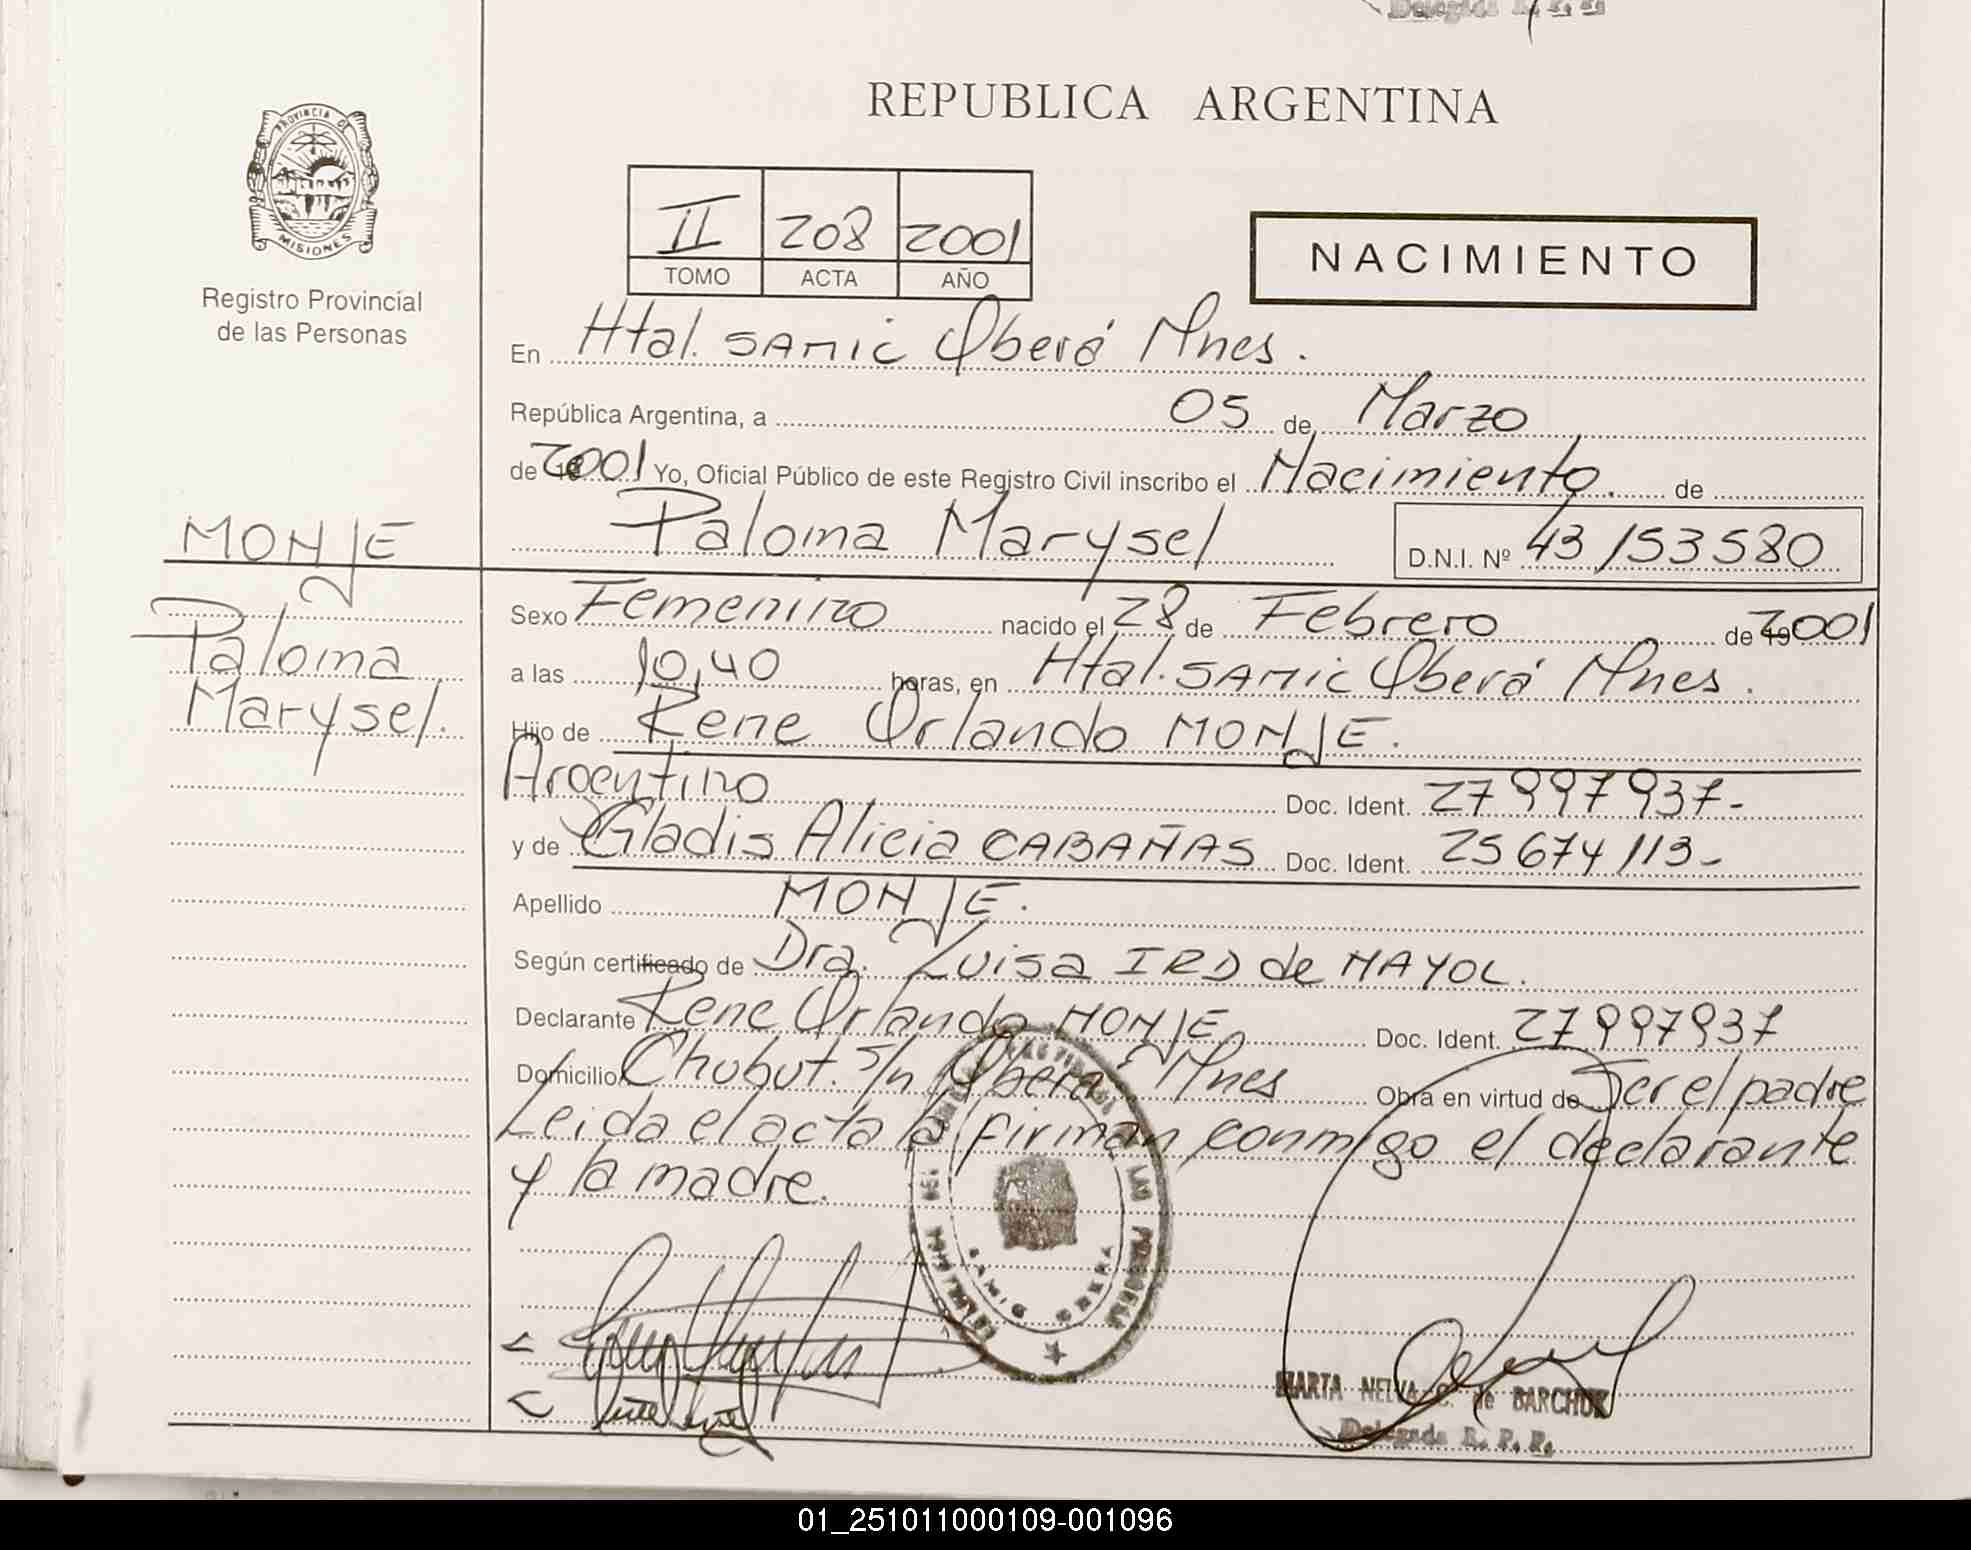 Delegada R. P. P.
REPUBLICA ARGENTINA
PROVINCIA DE
MISIONES
Registro Provincial
de las Personas
II 208 2001
TOMO ACTA AÑO
NACIMIENTO
En Htal. SAMIC Oberá Mnes.
República Argentina, a 05 de Marzo
de 2001 Yo, Oficial Público de este Registro Civil inscribo el Nacimiento. de
MONJE
Paloma Marysel D.N.I. Nº 43153580
Paloma
Marysel.
Sexo Femenino nacido el 28 de Febrero de 2001
a las 10,40 horas, en Htal. SAMIC Oberá Mnes.
Hijo de Rene Orlando MONJE.
Argentino Doc. Ident. 27997937-
y de Gladis Alicia CABAÑAS Doc. Ident. 25674113-
Apellido MONJE.
Según certificado de Dra. Luisa IRD de MAYOL.
Declarante Rene Orlando MONJE Doc. Ident. 27997937
Domicilio Chubut. S/n Oberá Mnes Obra en virtud de Ser el padre
Leida el acta la firman conmigo el declarante
y la madre.
MARTA NELVA C. de BARCHUK
Delegada R. P. P.
01_251011000109-001096